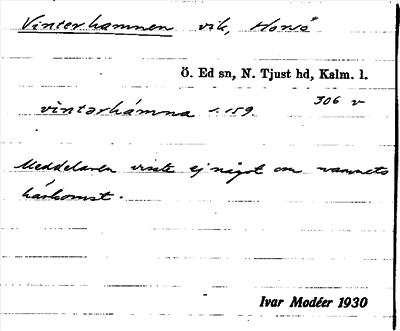 Vinterhamnen vik, Horsö
Ö. Ed sn, N. Tjust hd, Kalm. l.
vintərhámna s. 159. 306 v
Meddelaren visste ej något om namnets
härkomst.
Ivar Modéer 1930